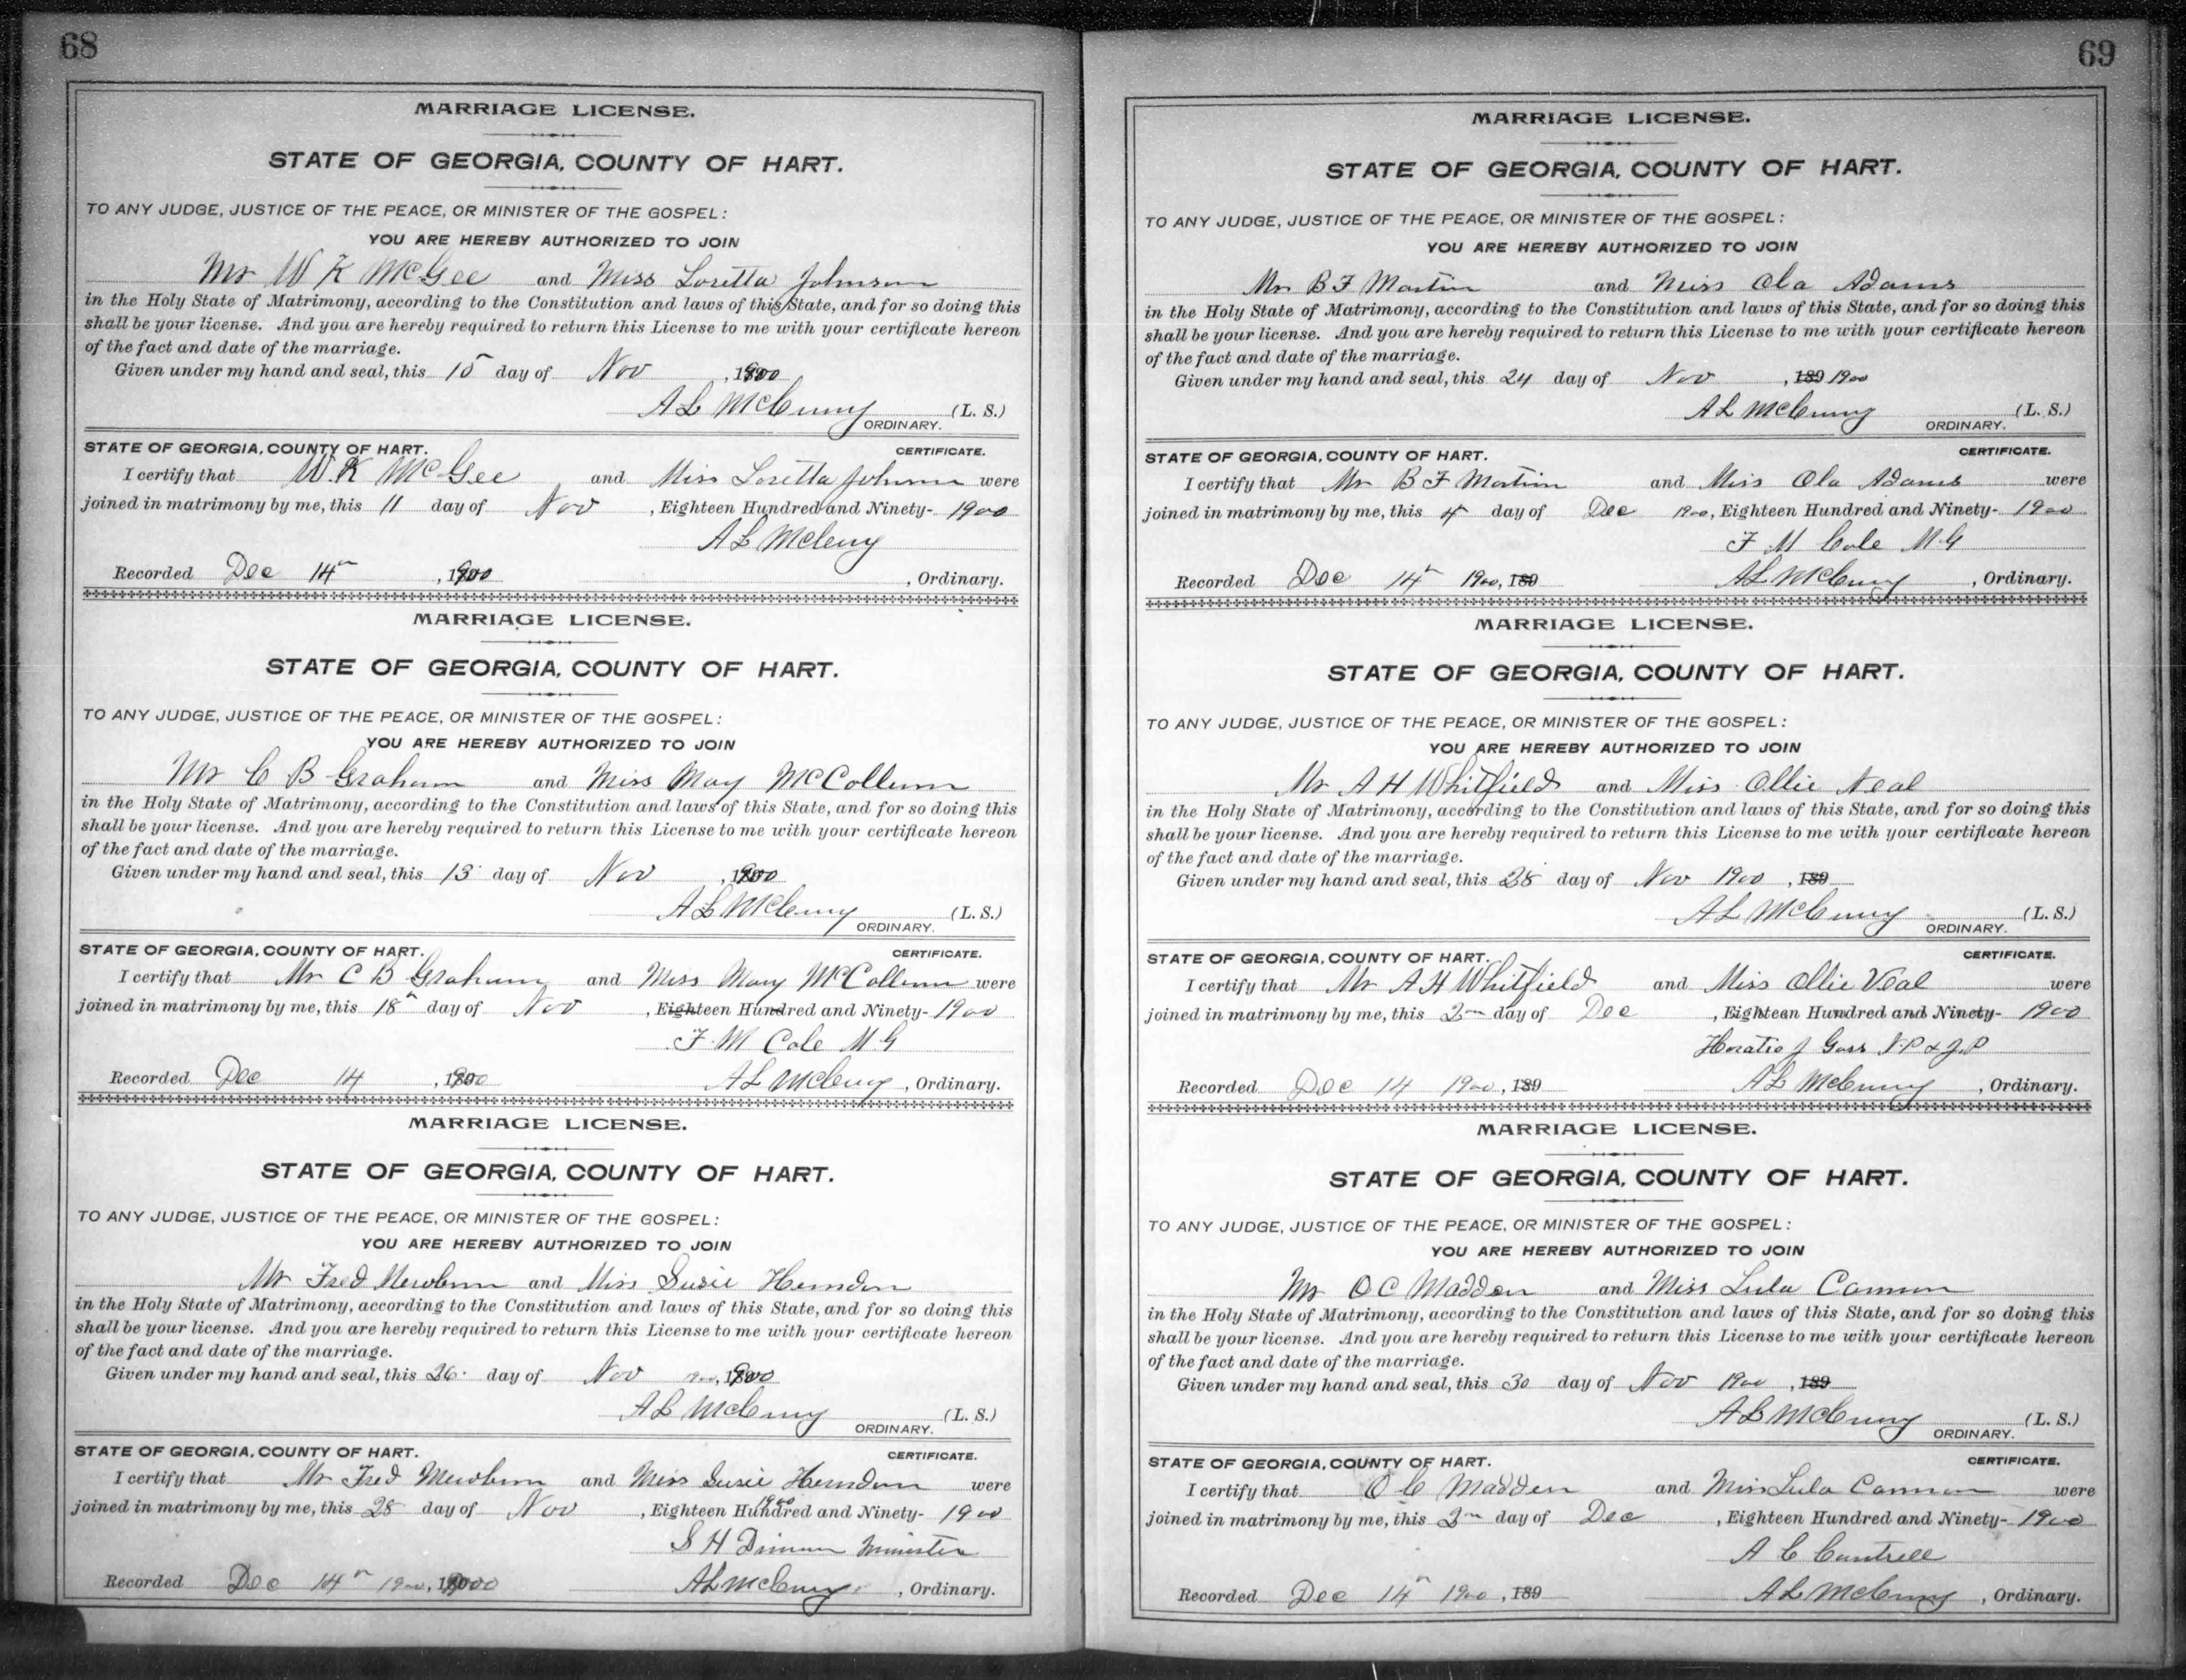 68
MARRIAGE LICENSE.
STATE OF GEORGIA, COUNTY OF HART.
TO ANY JUDGE, JUSTICE OF THE PEACE, OR MINISTER OF THE GOSPEL:
YOU ARE HEREBY AUTHORIZED TO JOIN
Mr W K McGee and Miss Loretta Johnson
in the Holy State of Matrimony, according to the Constitution and laws of this State, and for so doing this
shall be your license. And you are hereby required to return this License to me with your certificate hereon
of the fact and date of the marriage.
Given under my hand and seal, this day of Nov , 1900
A L McCurry (L. S.)
ORDINARY.
STATE OF GEORGIA, COUNTY OF HART. CERTIFICATE.
I certify that W. K McGee and Miss Loretta Johnson were
joined in matrimony by me, this 11 day of Nov , Eighteen Hundred and Ninety- 1900
A L McCurry
Recorded Dec 14th , 1900 , Ordinary.
MARRIAGE LICENSE.
STATE OF GEORGIA, COUNTY OF HART.
TO ANY JUDGE, JUSTICE OF THE PEACE, OR MINISTER OF THE GOSPEL:
YOU ARE HEREBY AUTHORIZED TO JOIN
Mr C B Graham and Miss May McCollum
in the Holy State of Matrimony, according to the Constitution and laws of this State, and for so doing this
shall be your license. And you are hereby required to return this License to me with your certificate hereon
of the fact and date of the marriage.
Given under my hand and seal, this 13 day of Nov , 1900
A L McCurry (L. S.)
ORDINARY.
STATE OF GEORGIA, COUNTY OF HART. CERTIFICATE.
I certify that Mr C B Graham and Miss May McCollum were
joined in matrimony by me, this 18th day of Nov , Eighteen Hundred and Ninety- 1900
F. M Cole M. G
Recorded Dec 14 , 1900 A L McCurry , Ordinary.
MARRIAGE LICENSE.
STATE OF GEORGIA, COUNTY OF HART.
TO ANY JUDGE, JUSTICE OF THE PEACE, OR MINISTER OF THE GOSPEL:
YOU ARE HEREBY AUTHORIZED TO JOIN
Mr Fred and Miss Susie Herndon
in the Holy State of Matrimony, according to the Constitution and laws of this State, and for so doing this
shall be your license. And you are hereby required to return this License to me with your certificate hereon
of the fact and date of the marriage.
Given under my hand and seal, this 26 day of Nov 1900, 1900
A L McCurry (L. S.)
ORDINARY.
STATE OF GEORGIA, COUNTY OF HART. CERTIFICATE.
I certify that Mr Fred and Miss Susie Herndon were
1900
joined in matrimony by me, this 28 day of Nov , Eighteen Hundred and Ninety- 1900
S H Minister
Recorded Dec 14th 1900, 1900 A L McCurry , Ordinary.
69
MARRIAGE LICENSE.
STATE OF GEORGIA, COUNTY OF HART.
TO ANY JUDGE, JUSTICE OF THE PEACE, OR MINISTER OF THE GOSPEL:
YOU ARE HEREBY AUTHORIZED TO JOIN
Mr B F Martin and Miss Ola Adams
in the Holy State of Matrimony, according to the Constitution and laws of this State, and for so doing this
shall be your license. And you are hereby required to return this License to me with your certificate hereon
of the fact and date of the marriage.
Given under my hand and seal, this 24 day of Nov , 189 1900
A L McCurry (L. S.)
ORDINARY.
STATE OF GEORGIA, COUNTY OF HART. CERTIFICATE.
I certify that Mr B F Martin and Miss Ola Adams were
joined in matrimony by me, this 4 day of Dec 1900, Eighteen Hundred and Ninety- 1900
F M Cole M. G
Recorded Dec 14th 1900, 189 A L McCurry , Ordinary.
MARRIAGE LICENSE.
STATE OF GEORGIA, COUNTY OF HART.
TO ANY JUDGE, JUSTICE OF THE PEACE, OR MINISTER OF THE GOSPEL:
YOU ARE HEREBY AUTHORIZED TO JOIN
Mr A H Whitfield and Miss Ollie Veal
in the Holy State of Matrimony, according to the Constitution and laws of this State, and for so doing this
shall be your license. And you are hereby required to return this License to me with your certificate hereon
of the fact and date of the marriage.
Given under my hand and seal, this 28 day of Nov 1900 , 189
A L McCurry (L. S.)
ORDINARY.
STATE OF GEORGIA, COUNTY OF HART. CERTIFICATE.
I certify that Mr A H Whitfield and Miss Ollie Veal were
joined in matrimony by me, this 2nd day of Dec , Eighteen Hundred and Ninety- 1900
Horatio J Goss N. P & J. P
Recorded Dec 14 1900, 189 A L McCurry , Ordinary.
MARRIAGE LICENSE.
STATE OF GEORGIA, COUNTY OF HART.
TO ANY JUDGE, JUSTICE OF THE PEACE, OR MINISTER OF THE GOSPEL:
YOU ARE HEREBY AUTHORIZED TO JOIN
Mr O C Madden and Miss Lula Cannon
in the Holy State of Matrimony, according to the Constitution and laws of this State, and for so doing this
shall be your license. And you are hereby required to return this License to me with your certificate hereon
of the fact and date of the marriage.
Given under my hand and seal, this 30 day of Nov 1900 , 189
A L McCurry (L. S.)
ORDINARY.
STATE OF GEORGIA, COUNTY OF HART. CERTIFICATE.
I certify that O C Madden and Miss Lula Cannon were
joined in matrimony by me, this 2nd day of Dec , Eighteen Hundred and Ninety- 1900
A C Cantrell
Recorded Dec 14th 1900 , 189 A L McCurry , Ordinary.